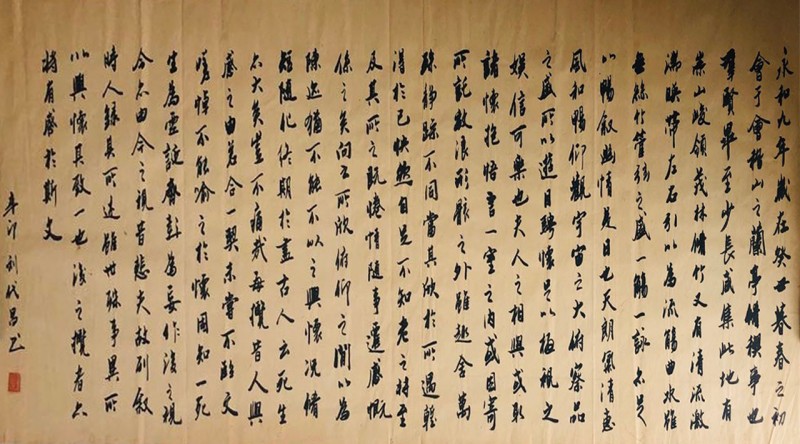 永和九年歲在癸丑暮春之初
會于會稽山之蘭亭脩禊事也
群賢畢至少長咸集此地有
崇山峻領茂林脩竹又有清流激
湍映帶左右引以為流觴曲水雖
無絲竹管弦之盛一觴一詠亦足
以暢敘幽情是日也天朗氣清惠
風和暢仰觀宇宙之大俯察品
之盛所以遊目騁懷足以極視之
娛信可樂也夫人之相與或取
諸懷抱悟言一室之內或因寄
所託放浪形骸之外雖趣舍萬
殊靜躁不同當其欣於所遇蹔
得於己快然自足不知老之將至
及其所之既惓情隨事遷感慨
係之矣向之所欣俯仰之間以為
陳迹猶不能不以之興懷況脩
短隨化終期於盡古人云死生
亦大矣豈不痛哉每攬昔人興
感之由若合一契未嘗不臨文
嗟悼不能喻之於懷固知一死
生為虛誕齊彭為妄作後之視
今亦由今之視昔悲夫故列敘
時人錄其所述雖世殊事異所
以興懷其致一也後之攬者亦
將有感於斯文
辛卯 劉昌書